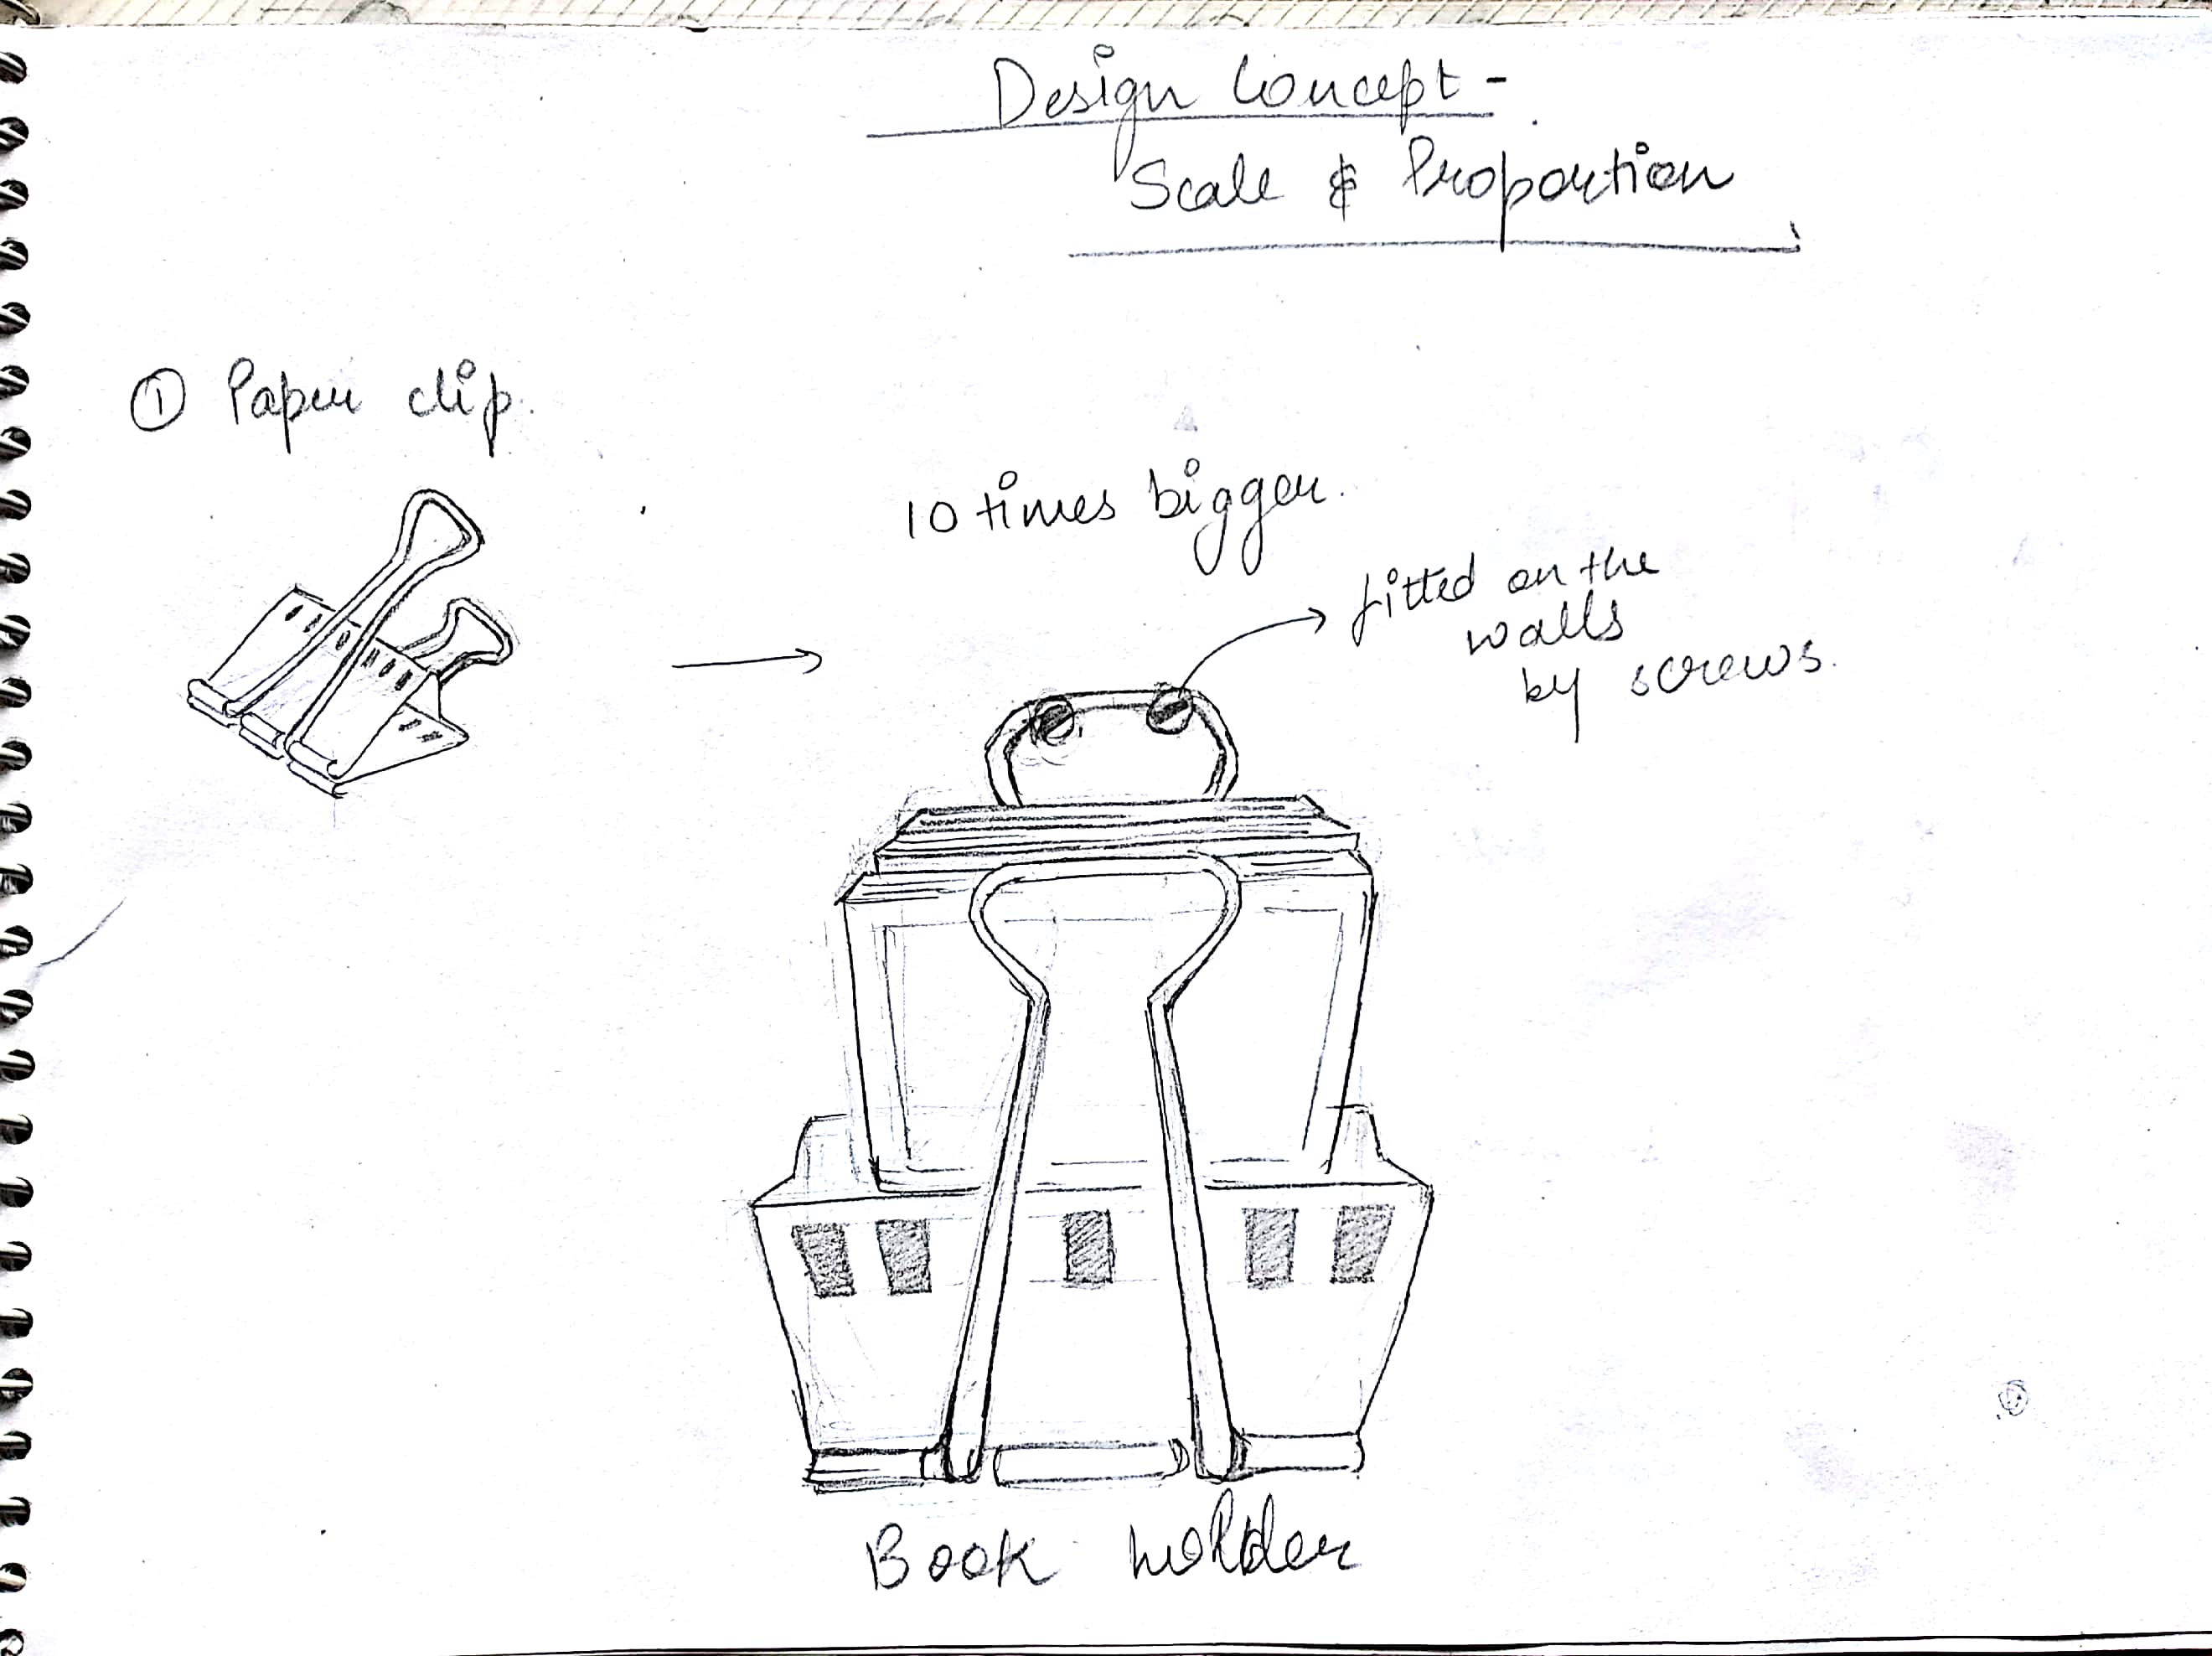 Design Concept -
Scale & Proportion
① Paper clip.
10 times bigger.
fitted on the
walls
by screws.
Book holder